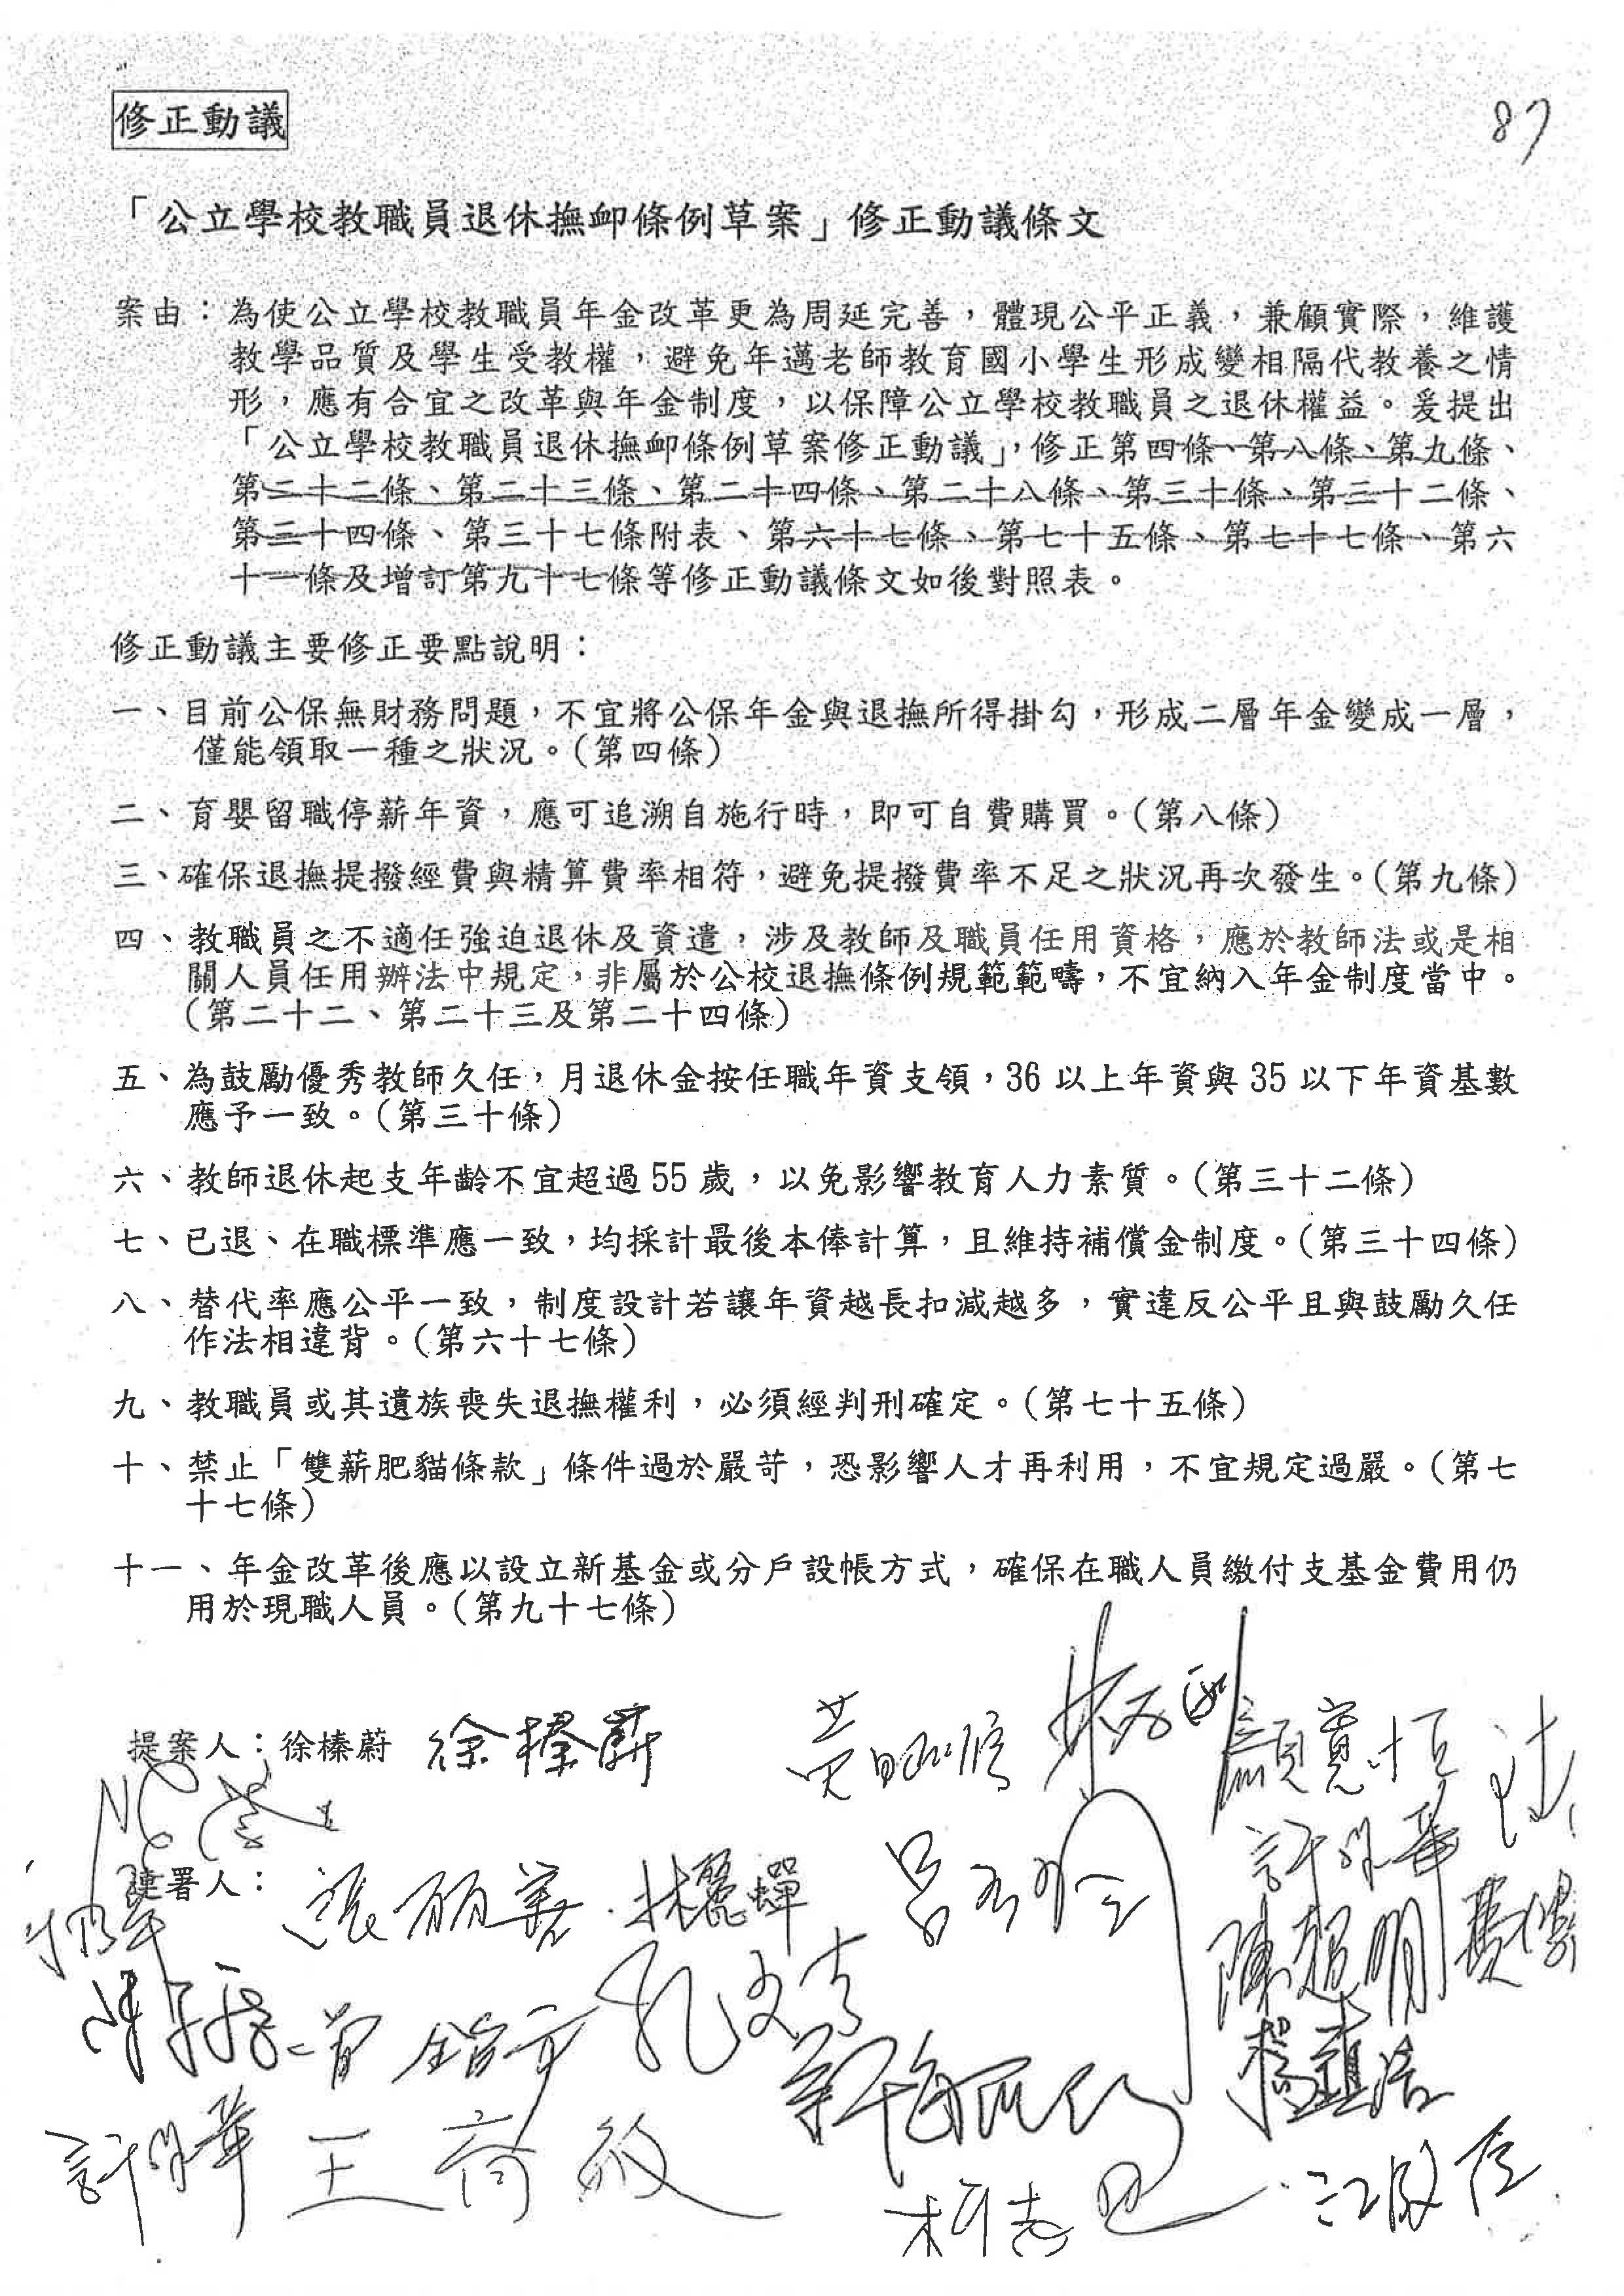 修正動議
87
「公立學校教職員退休撫卹條例草案」修正動議條文
案由：為使公立學校教職員年金改革更為周延完善，體現公平正義，兼顧實際，維護
教學品質及學生受教權，避免年邁老師教育國小學生形成變相隔代教養之情
形，應有合宜之改革與年金制度，以保障公立學校教職員之退休權益。爰提出
「公立學校教職員退休撫卹條例草案修正動議」，修正第四條、第八條、第九條、
第二十二條、第二十三條、第二十四條、第二十八條、第三十條、第三十二條、
第三十四條、第三十七條附表、第六十七條、第七十五條、第七十七條、第六
十一條及增訂第九十七條等修正動議條文如後對照表。
修正動議主要修正要點說明：
一、目前公保無財務問題，不宜將公保年金與退撫所得掛勾，形成二層年金變成一層，
僅能領取一種之狀況。（第四條）
二、育嬰留職停薪年資，應可追溯自施行時，即可自費購買。（第八條）
三、確保退撫提撥經費與精算費率相符，避免提撥費率不足之狀況再次發生。（第九條）
四、教職員之不適任強迫退休及資遣，涉及教師及職員任用資格，應於教師法或是相
關人員任用辦法中規定，非屬於公校退撫條例規範範疇，不宜納入年金制度當中。
（第二十二、第二十三及第二十四條）
五、為鼓勵優秀教師久任，月退休金按任職年資支領，36 以上年資與 35 以下年資基數
應予一致。（第三十條）
六、教師退休起支年齡不宜超過 55 歲，以免影響教育人力素質。（第三十二條）
七、已退、在職標準應一致，均採計最後本俸計算，且維持補償金制度。（第三十四條）
八、替代率應公平一致，制度設計若讓年資越長扣減越多，實違反公平且與鼓勵久任
作法相違背。（第六十七條）
九、教職員或其遺族喪失退撫權利，必須經判刑確定。（第七十五條）
十、禁止「雙薪肥貓條款」條件過於嚴苛，恐影響人才再利用，不宜規定過嚴。（第七
十七條）
十一、年金改革後應以設立新基金或分戶設帳方式，確保在職人員繳付支基金費用仍
用於現職人員。（第九十七條）
提案人：徐榛蔚 徐榛蔚 黃昭順 顏寬恒
連署人：張麗善 林麗蟬 呂玉玲 許淑華
陳超明 費鴻泰
曾銘宗 孔文吉
楊鎮浯
許淑華 王育敏 柯志恩 江啟臣